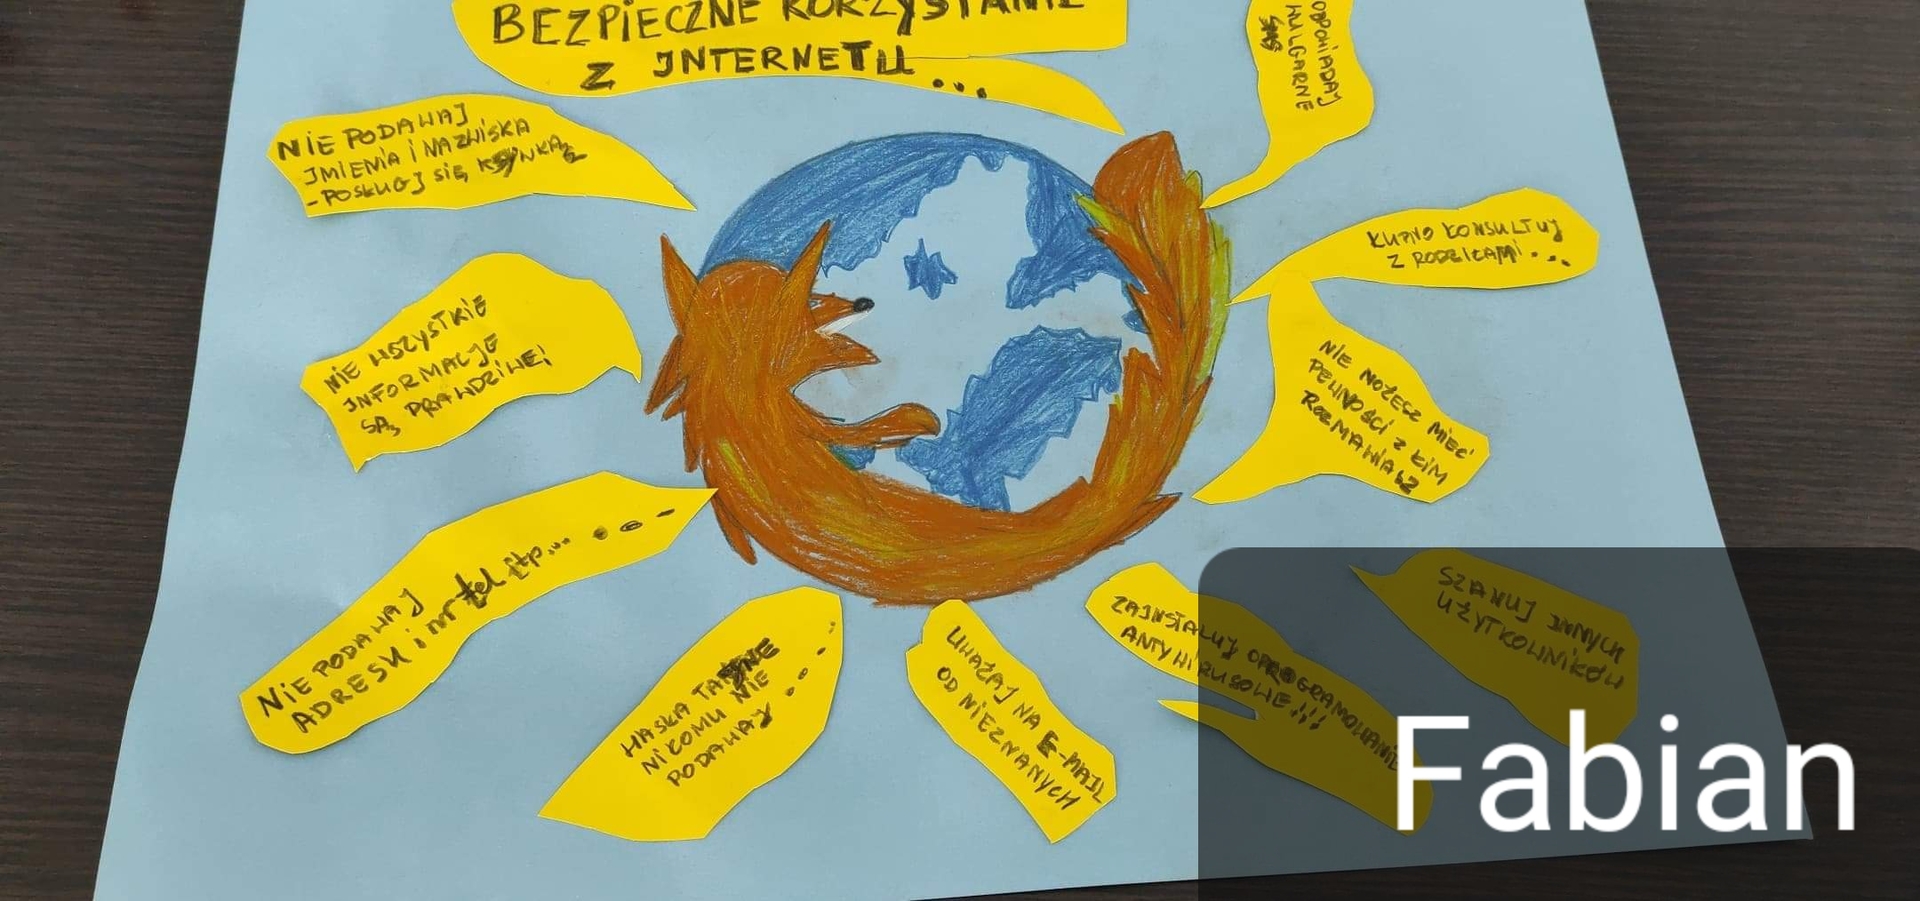 BEZPIECZNE KORZYSTANIE
Z INTERNETU...
NIE PODAWAJ
IMIENIA I NAZWISKA
- POSŁUGJ SIĘ KSYWKĄ
ODPOWIADAJ
WULGARNE
SMS
KUPNO KONSULTUJ
Z RODZICAMI...
NIE WSZYSTKIE
INFORMACJE
SĄ PRAWDZIWE!
NIE MOŻESZ MIEĆ
PEWNOŚCI Z KIM
ROZMAWIASZ
NIE PODAWAJ
ADRESU i nr tel itp...
HASŁA
NIKOMU NIE
PODAWAJ
UWAŻAJ NA E-MAIL
OD NIEZNANYCH
ZAINSTALUJ OPROGRAMOWANIE
ANTYWIRUSOWE!!!
SZANUJ INNYCH
UŻYTKOWNIKÓW
Fabian